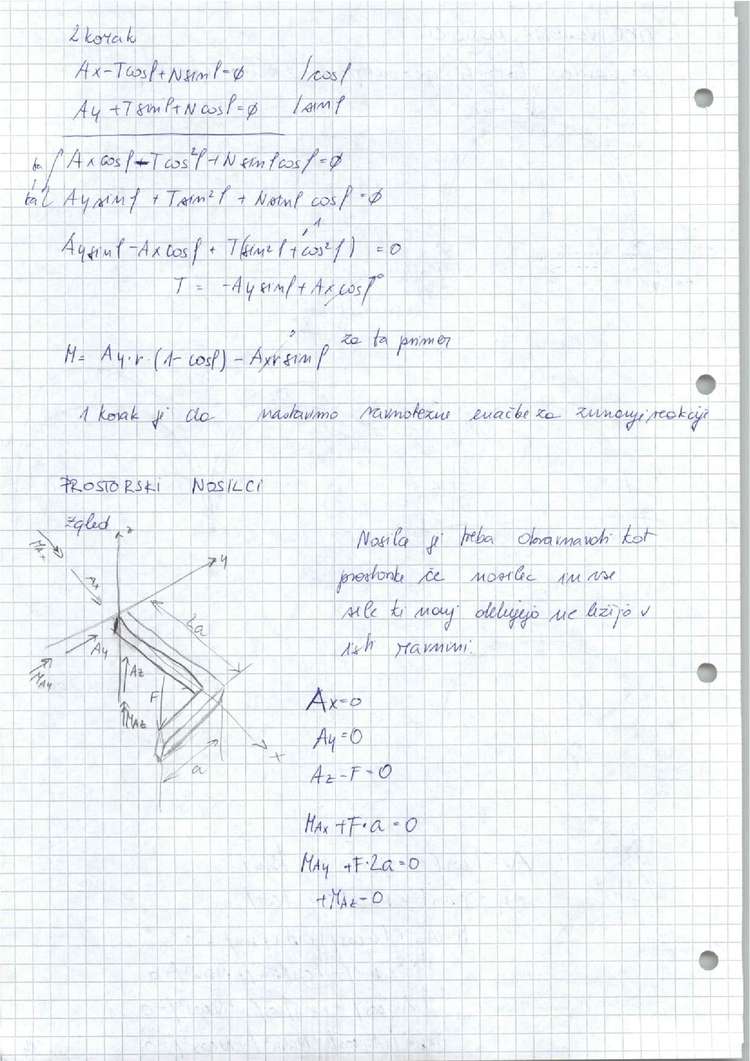 2 korak
Ax-Tcosφ+Nsinφ=∅ /cosφ
Ay+Tsinφ+Ncosφ=∅ /sinφ
Axcosφ-Tcos²φ+Nsinφcosφ=∅
Aysinφ+Tsin²φ+Nsinφ cosφ=∅
1
Aysinφ-Axcosφ+T(sin²φ+cos²φ) =0
T= -Aysinφ+Axcosφ
M= Ay·r·(1-cosφ)-Axrsinφ za ta primer
1 korak je da nastavimo ravnotežne enačbe za zunanje reakcije
PROSTORSKI NOSILCI
zgled
Nosilce je treba obravnavati kot
prostorske če nosilec in vse
sile ki nanj delujejo ne ležijo v
isti ravnini.
MAx
z
y
2a
Ay
MAy
Az
F
MAz
x
a
Ax=0
Ay=0
Az-F=0
MAx+F·a=0
MAy+F·2a=0
+MAz=0